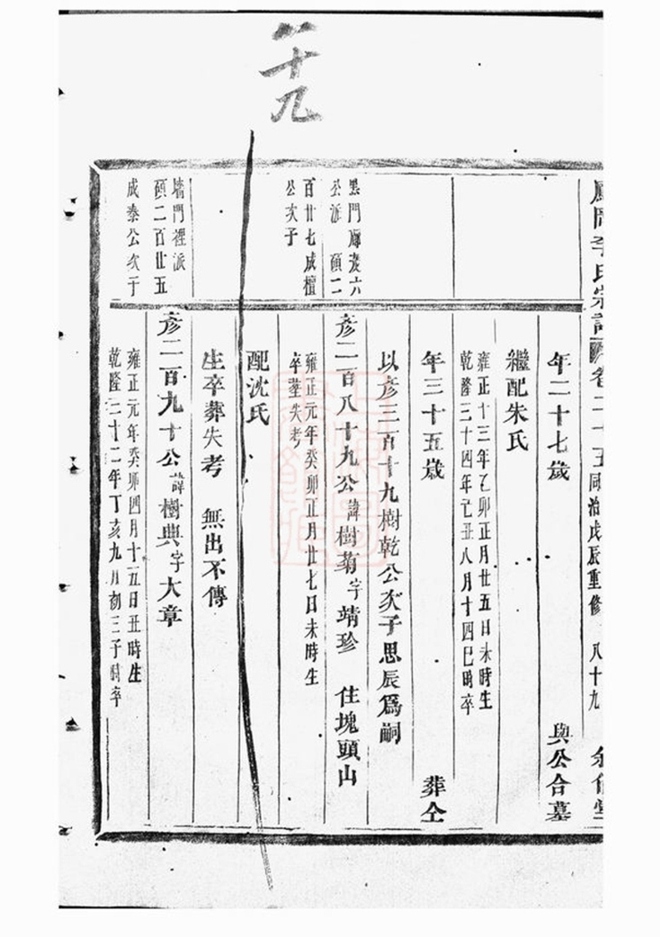 二十九
李氏宗譜 卷二十五 同治戊辰重修 八十九
年二十七歲 與公合墓
繼配朱氏
雍正十三年乙卯正月廿五日未時生
乾隆三十四年己丑八月十四巳時卒
年三十五歲 葬仝
以彥三百十九樹乾公次子思辰爲嗣
公派 碩二
百廿七成檀
公次子
彥二百八十九公諱樹菊字靖珍 住塊頭山
雍正元年癸卯正月廿七日未時生
卒塟失考
配沈氏
生卒葬失考 無出不傳
墻門裡派
碩二百廿五
成泰公次子
彥二百九十公諱樹典字大章
雍正元年癸卯四月十五日丑時生
乾隆三十二年丁亥九月初三子時卒